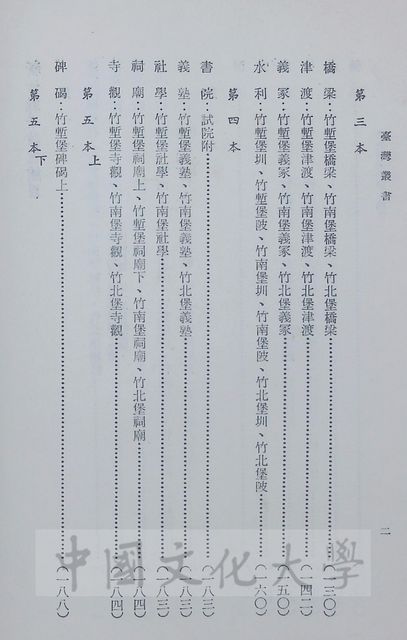 臺灣叢書
第三本
橋梁：竹塹堡橋梁、竹南堡橋梁、竹北堡橋梁（一三〇）
津渡：竹塹堡津渡、竹南堡津渡、竹北堡津渡（一四二）
義冢：竹塹堡義冢、竹南堡義冢、竹北堡義冢（一五〇）
水利：竹塹堡圳、竹塹堡陂、竹南堡圳、竹南堡陂、竹北堡圳、竹北堡陂（一六〇）
第四本
書院：試院附（一八三）
義塾：竹塹堡義塾、竹南堡義塾、竹北堡義塾（一八三）
社學：竹塹堡社學、竹南堡社學（一八三）
祠廟：竹塹堡祠廟上、竹塹堡祠廟下、竹南堡祠廟、竹北堡祠廟（一八四）
寺觀：竹塹堡寺觀、竹南堡寺觀、竹北堡寺觀（一八四）
第五本上
碑碣：竹塹堡碑碣上（一八八）
第五本下
二
中國文化大學